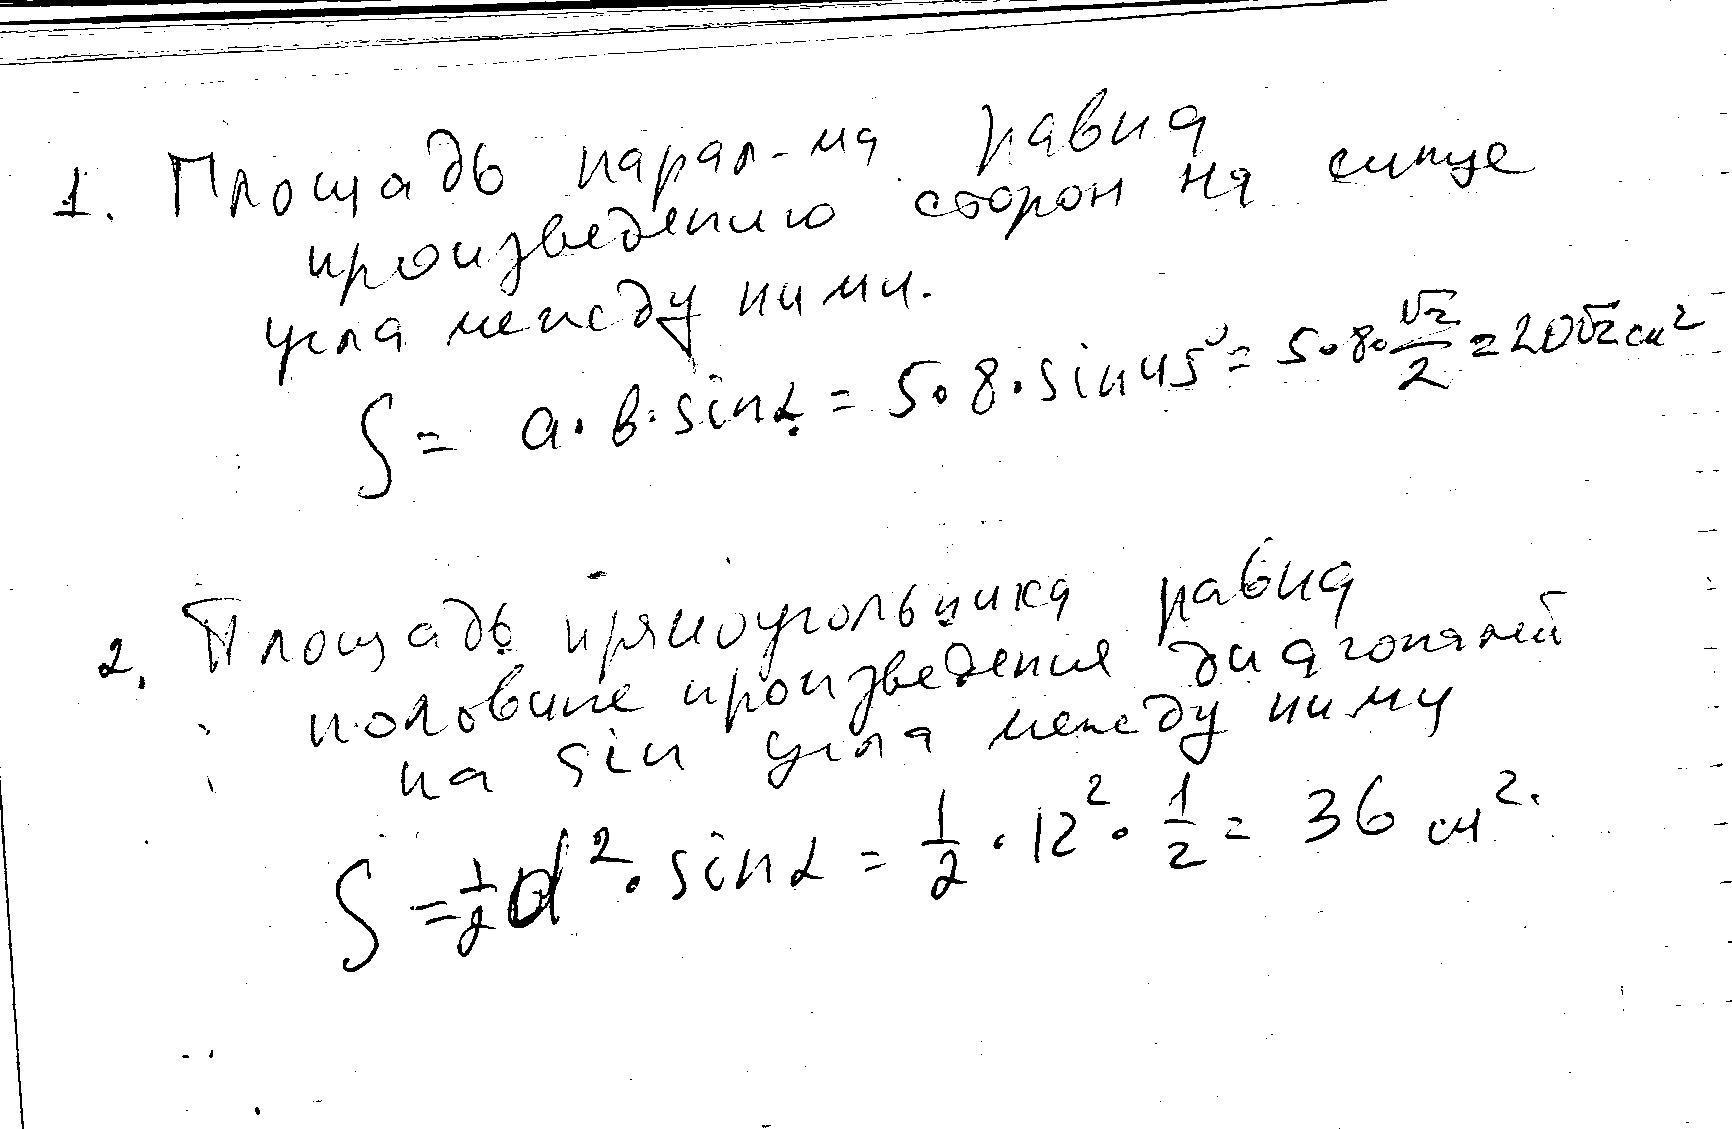 1. Площадь парал-ма равна
произведению сторон на синус
угла между ними.
S = a · b · sin α = 5 · 8 · sin 45° = 5 · 8 · √2/2 = 20√2 см²
2. Площадь прямоугольника равна
половине произведения диагоналей
на sin угла между ними
S = 1/2 d² · sin α = 1/2 · 12² · 1/2 = 36 см².